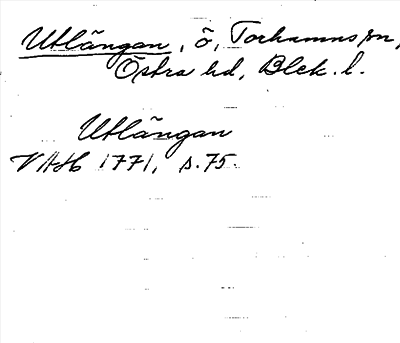 Utlängan, ö, Torhamns sn,
Östra hd, Blek. l.
Utlängan
VAH 1771, s. 75.